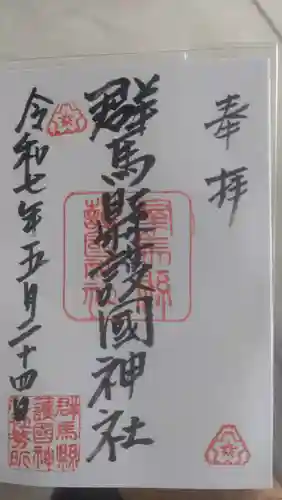 奉拝
群馬縣護國神社
令和七年五月二十四日
群馬縣
護國神
社務所